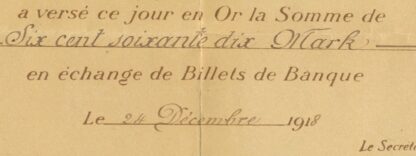 a versé ce jour en Or la Somme de
Six cent soixante dix Mark
en échange de Billets de Banque
Le 24 Décembre 1918
Le Secrét